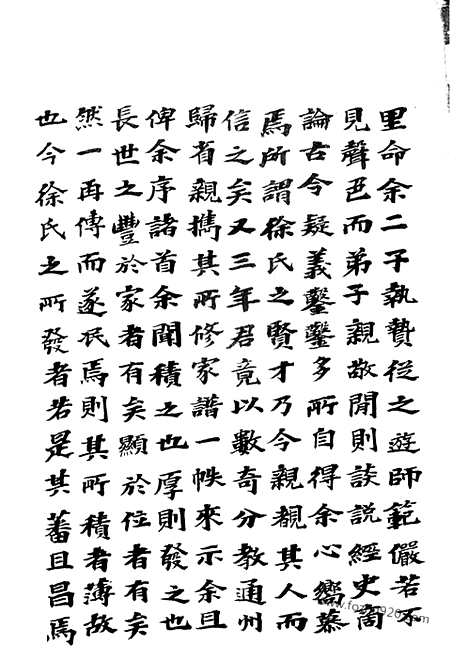 里命余二子執贄從之遊師範儼若不
見聲色而弟子親故閒則談說經史商
論古今疑義鑿鑿多所自得余心嚮慕
焉所謂徐氏之賢才乃今親覩其人而
信之矣又三年君竟以數奇分教通州
歸省親攜其所修家譜一帙來示余且
俾余序諸首余聞積之也厚則發之也
長世之豐於家者有矣顯於位者有矣
然一再傳而遂泯焉則其所積者薄故
也今徐氏之所發者若是其蕃且昌焉